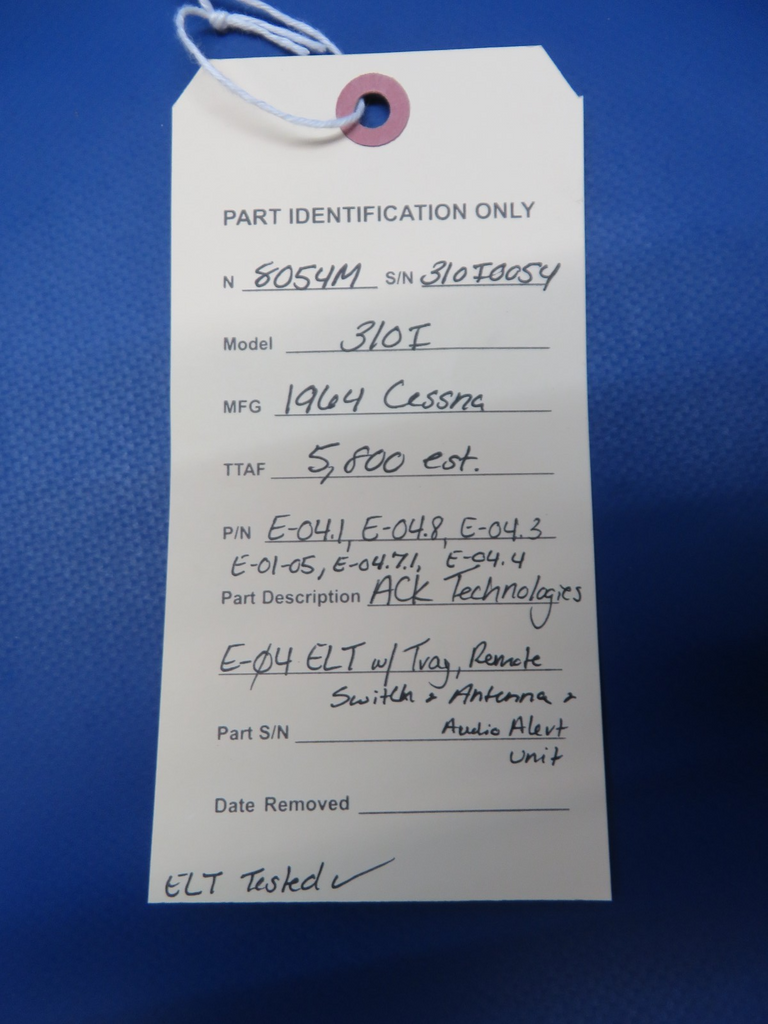 PART IDENTIFICATION ONLY
N 8054M S/N 310I0054
Model 310I
MFG 1964 Cessna
TTAF 5,800 est.
P/N E-04.1, E-04.8, E-04.3
E-01-05, E-04.7.1, E-04.4
Part Description ACK Technologies
E-Ø4 ELT w/ Tray, Remote
Switch & Antenna &
Part S/N Audio Alert
Unit
Date Removed
ELT Tested ✓